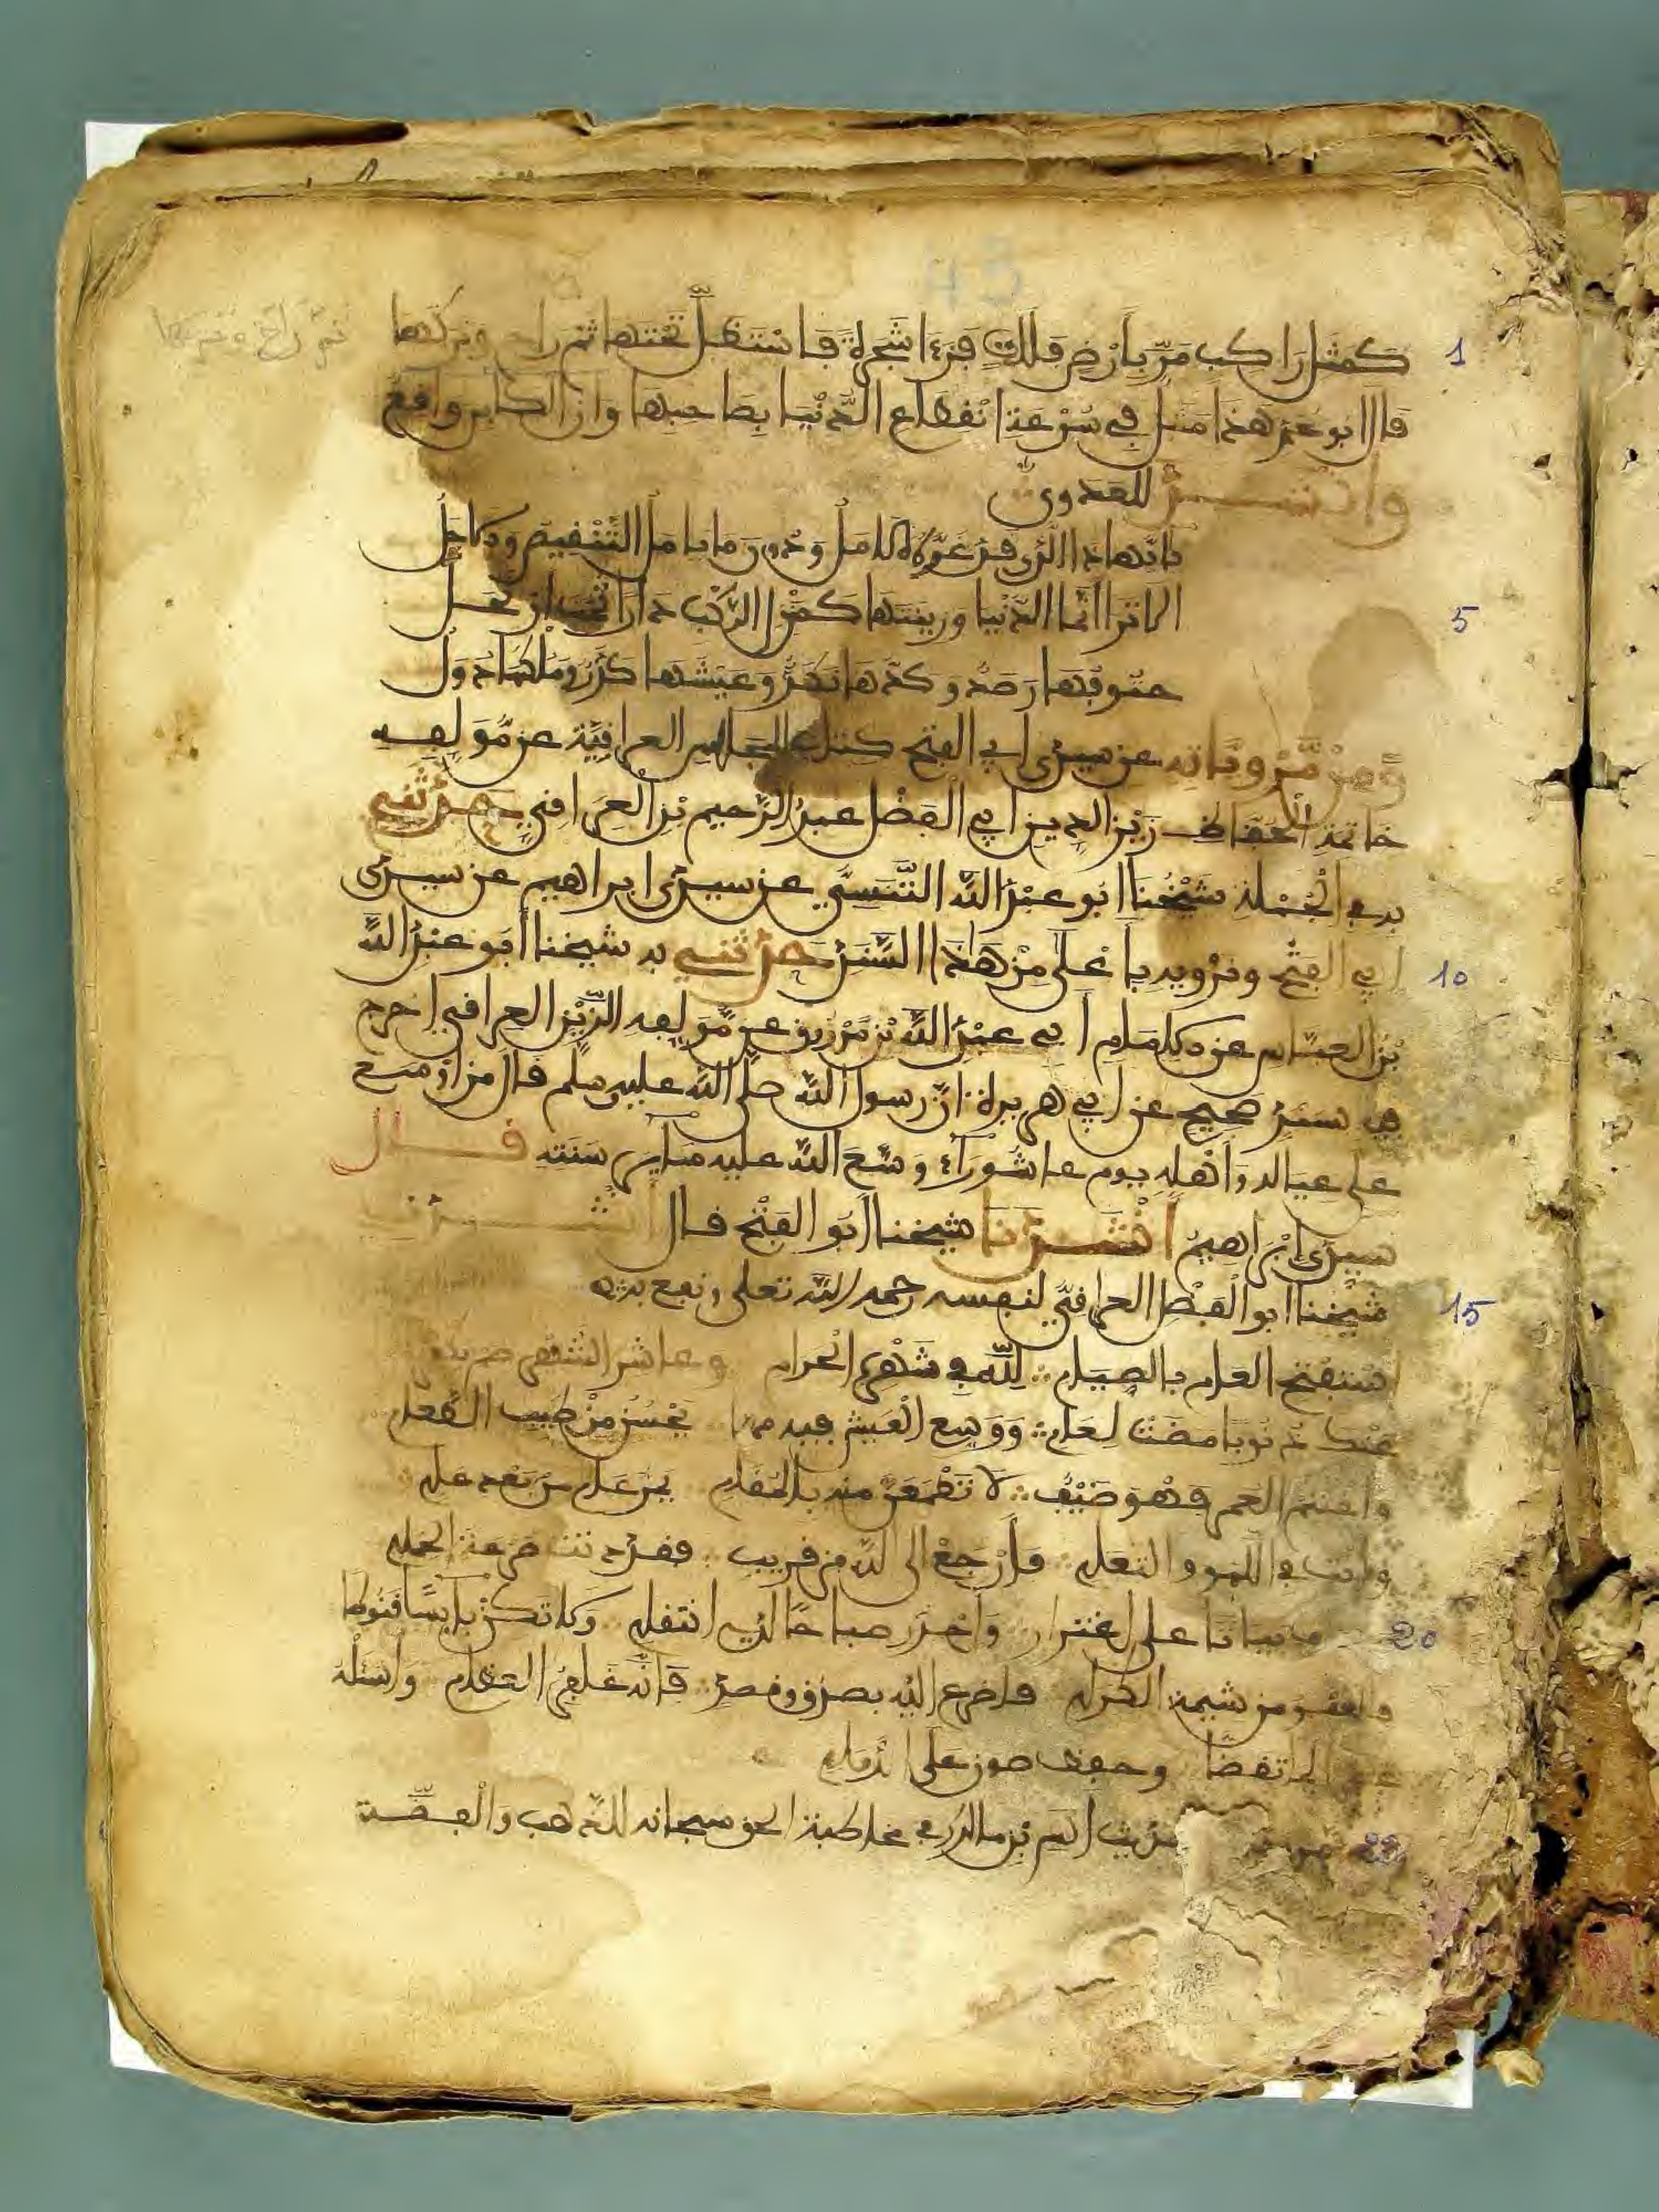 كمثل راكب مرّ بأرض فلات فرءا شجرة فاستظل تحتها ثم راح وتركها
ثم راح وتركها
قال ابو عمر هذا مثل في سرعة انقطاع الدنيا بصاحبها وان الكابر واقع
وانشد للعدوي
يا أيها ذا الذي قد غره الامل ودون ما يامل التنغيص والاجل
الا ترا انما الدنيا وزينتها كمنزل الركب دارا ثمت ارتحلوا
حتوفها رصد وكدها نكد وعيشها كدر وملكها دول
ومن مروياته عن سيدي ابي الفتح كتاب المجالس العراقية عن مؤلفه
خاتمة الحفاظ زين الدين ابي الفضل عبد الرحيم بن العراقي حدثني
به في الجملة شيخنا ابو عبد الله التنسي عن سيدي ابراهيم عن سيدي
ابي الفتح ونرويه بأعلى من هاذا السند حدثني به شيخنا أبو عبد الله
بن العباس عن الامام أبي عبد الله بن مرزوق عن مؤلفه الزين العراقي اخرج
في سند صحيح عن ابي هريرة ان رسول الله صلى الله عليه وسلم قال من اوسع
على عياله وأهله يوم عاشوراء وسع الله عليه ساير سنته قال
سيدي ابراهيم أنشدنا شيخنا أبو الفتح قال أنشدني
شيخنا ابو الفضل العراقي لنفسه رحمه الله تعلى ونفع به
استفتح العام بالصيام لله في شهره الحرام وعاشر الشهر صم يكفر
عنك ذنوبا مضت لعام ووسع العيش فيه مما يحسن من طيب الطعام
واغتنم العمر فهو ضيف لا تطمعن منه بالمقام يمر عام من بعد عام
وانت في اللهو والتعام فارجع الى الله من قريب فقد دنت صرعة الحمام
بياتا على اغترار واحذر صباحا لدى انتقام ولا تكن يايسا قنوطا
فالعفو من شيمة الكرام فاضرع اليه بصدق وقصد فانه غافر العظام واسئله
وحفظ صون على الدوام
حديث انس بن مالك في مخاطبة الحق سبحانه الذهب والفضة
1
5
10
15
20